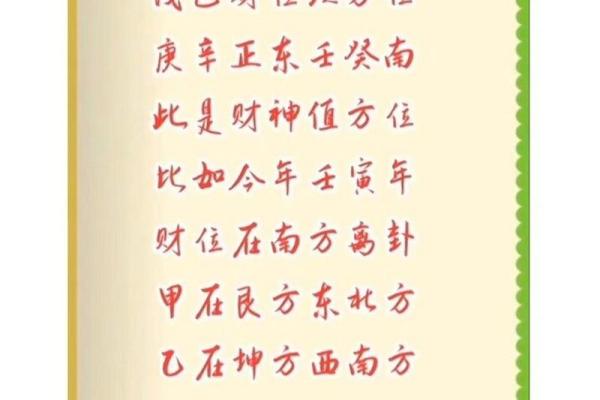 庚辛正东壬癸南
此是财神值方位
比如今年壬寅年
财位在南方离卦
甲在艮方东北方
乙在坤方西南方